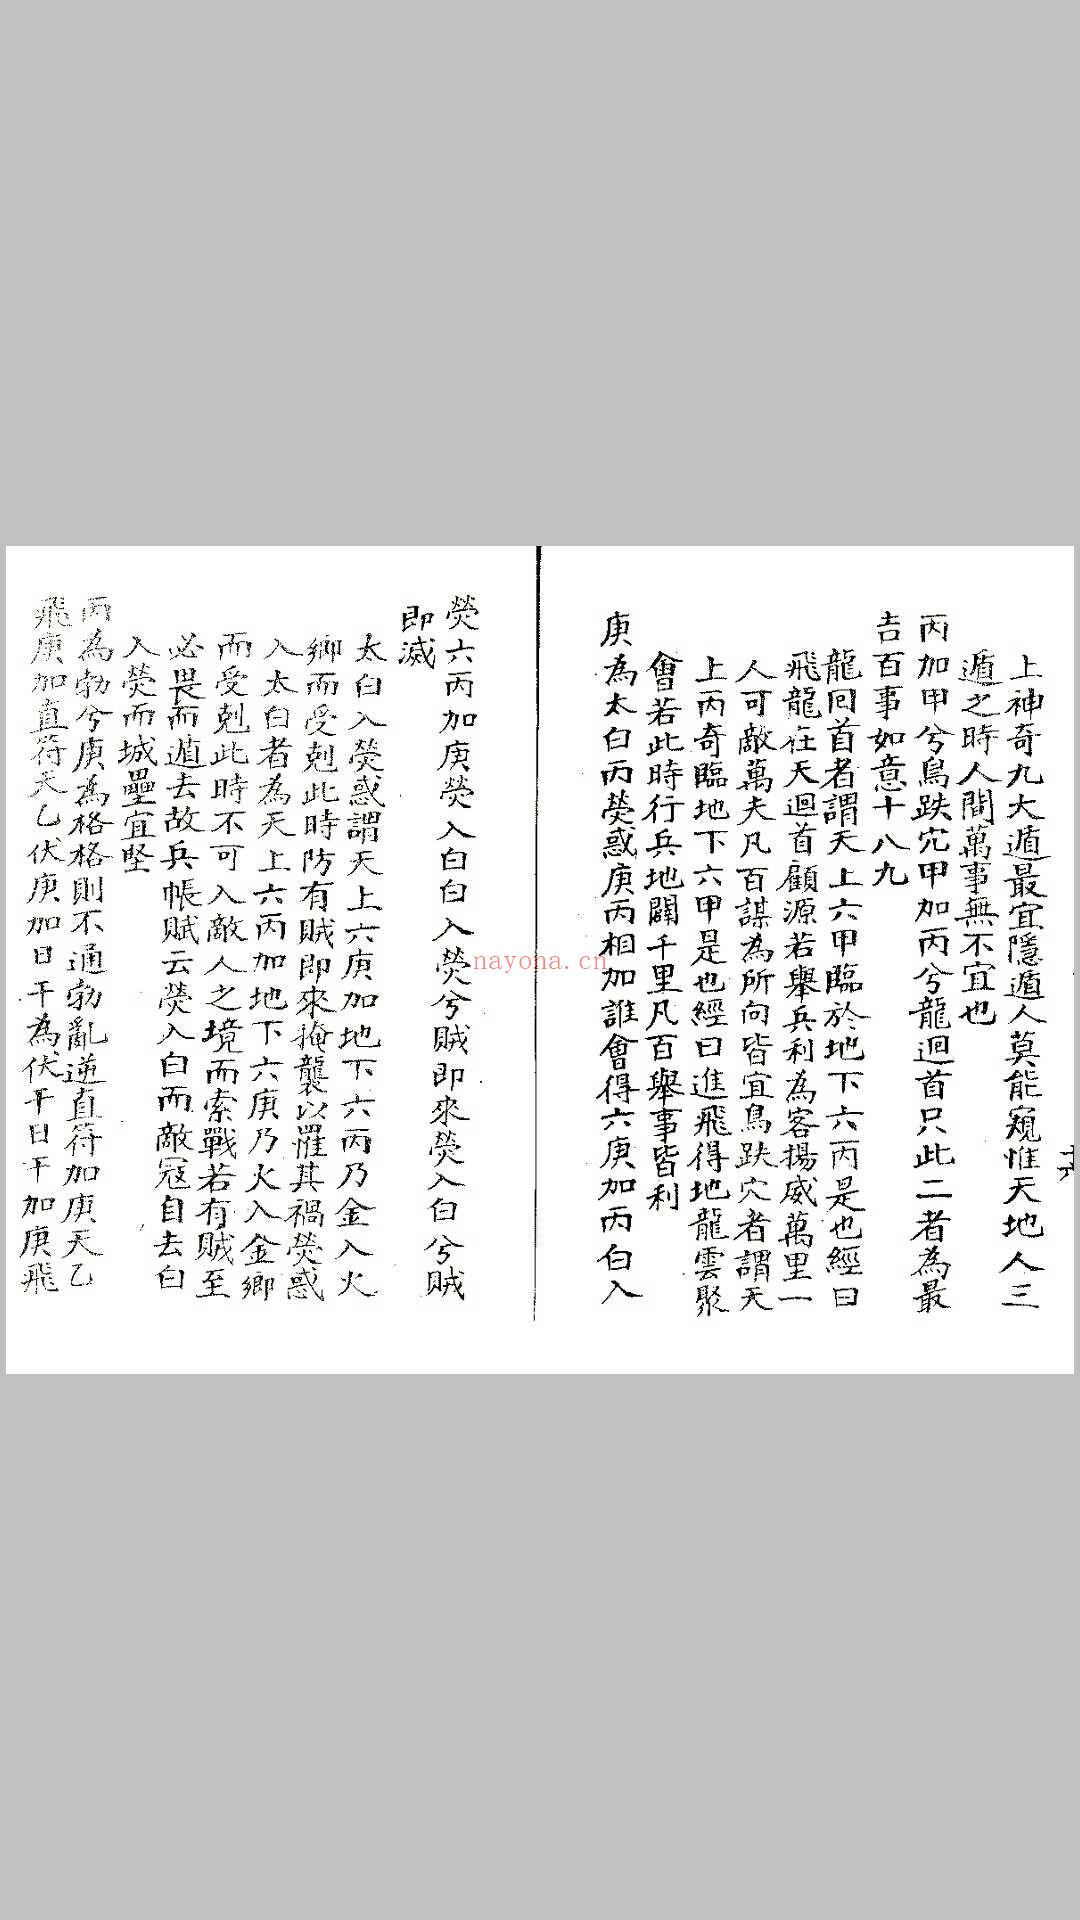 上神奇九大遁最宜隱遁人莫能窺惟天地人三
遁之時人間萬事無不宜也
丙加甲兮鳥跌穴甲加丙兮龍迴首只此二者為最
吉百事如意十八九
龍回首者謂天上六甲臨於地下六丙是也經曰
飛龍在天迴首顧源若舉兵利為客揚威萬里一
人可敵萬夫凡百謀為所向皆宜鳥跌穴者謂天
上丙奇臨地下六甲是也經曰進飛得地龍雲聚
會若此時行兵地闢千里凡百舉事皆利
庚為太白丙熒惑庚丙相加誰會得六庚加丙白入
熒六丙加庚熒入白白入熒兮賊即來熒入白兮賊
即滅
太白入熒惑謂天上六庚加地下六丙乃金入火
鄉而受剋此時防有賊即來掩襲以罹其禍熒惑
入太白者為天上六丙加地下六庚乃火入金鄉
而受剋此時不可入敵人之境而索戰若有賊至
必畏而遁去故兵帳賦云熒入白而敵寇自去白
入熒而城壘宜堅
丙為勃兮庚為格格則不通勃亂逆直符加庚天乙
飛庚加直符天乙伏庚加日干為伏干日干加庚飛
nayona.cn